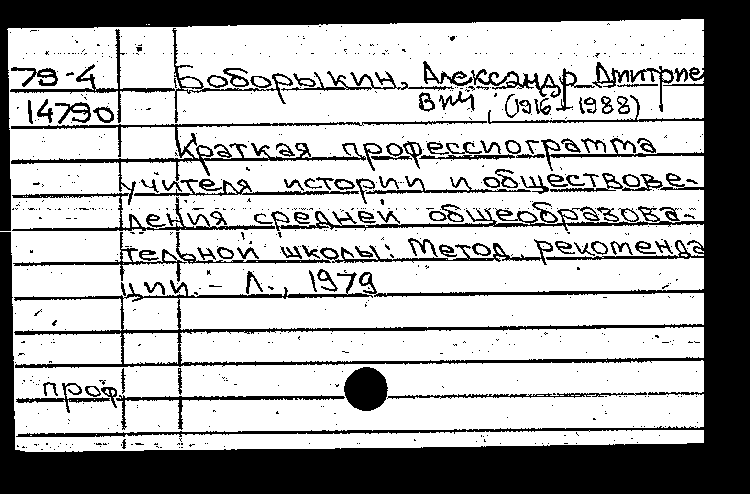 79-4 Боборыкин, Александр Дмитрие
14790 вич, (1916-1988)
Краткая профессиограмма
учителя истории и обществове-
дения средней общеобразова-
тельной школы: Метод. рекоменда
ции. - Л., 1979
проф.